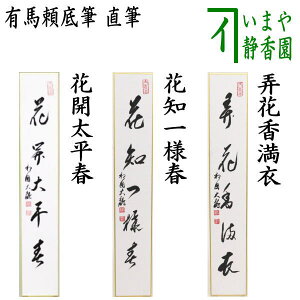 有馬頼底筆 直筆
いまや
静香園
花開太平春
花開太平春
花知一様春
花知一様春
弄花香満衣
弄花香満衣